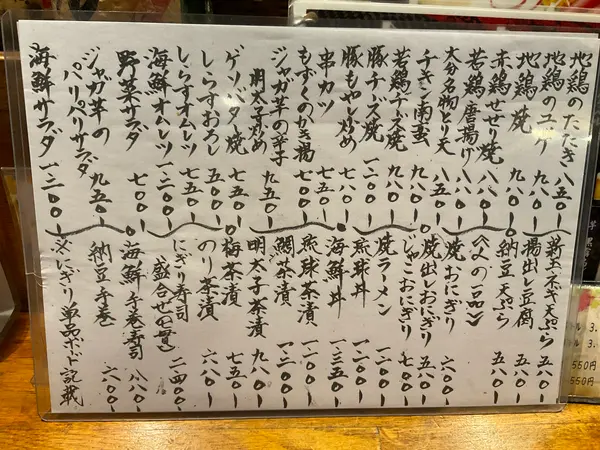 地鶏のたたき 八五〇ー
地鶏のユッケ 九八〇ー
地鶏焼 九八〇ー
赤鶏せせり焼 八八〇ー
若鶏唐揚げ 八八〇ー
大分名物とり天 八八〇ー
チキン南蛮 九八〇ー
若鶏チーズ焼 九八〇ー
豚チーズ焼 一二〇〇ー
豚もやし炒め 七八〇ー
串カツ 五五〇ー
もずくのかき揚 七五〇ー
ジャガ芋の辛子
明太子炒め 九五〇ー
ゲソバター焼 七五〇ー
しらすおろし 五五〇ー
しらすオムレツ 七五〇ー
海鮮オムレツ 一二〇〇ー
野菜サラダ 七〇〇ー
ジャガ芋の
パリパリサラダ 九五〇ー
海鮮サラダ 一三〇〇ー
新玉ネギ天ぷら 五五〇ー
揚出し豆腐 五五〇ー
納豆天ぷら 五八〇ー
〈〆の一品〉
焼おにぎり 六〇〇ー
焼出しおにぎり 五八〇ー
じゃこおにぎり 七〇〇ー
焼ラーメン 一二〇〇ー
琉球丼 一二〇〇ー
海鮮丼 一三五〇ー
琉球茶漬 一二〇〇ー
鯛茶漬 一二〇〇ー
明太子茶漬 九八〇ー
梅茶漬 七五〇ー
のり茶漬 六八〇ー
にぎり寿司
盛合せ(七貫) 二四〇〇ー
海鮮手巻寿司 八八〇ー
納豆手巻 六八〇ー
※にぎり単品ボード記載
550円
550円